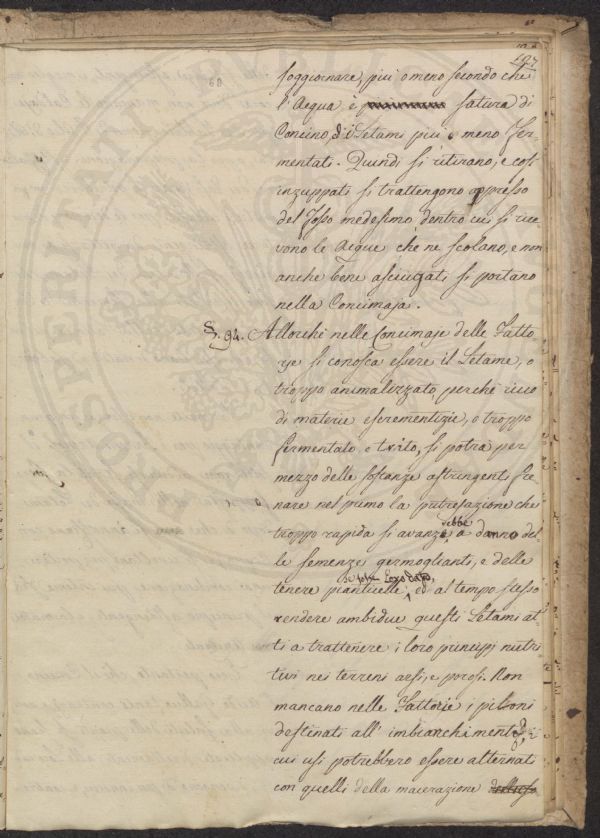 197
soggiornare, più o meno secondo che
l'Acqua è satura di
Concino, di Letami più o meno fer-
mentati. Quindi si ritirano, e così
inzuppati si trattengono appresso
del Fosso medesimo, dentro cui si rice-
vono le Acque che ne scolano, e non
anche bene asciugati si portano
nella Concimaja.
§. 94. Allorchè nelle Concimaje delle Fatto-
rje si conosca essere il Letame, o
troppo animalizzato, perchè ricco
di materie escrementizie, o troppo
fermentato e trito, si potrà per
mezzo delle sostanze astringenti fre-
nare nel primo la putrefazione che
troppo rapida si avanzerebbe a danno del-
le semenze germoglianti, e delle
tenere pianticelle, ed al tempo stesso
rendere ambidue questi Letami at-
ti a trattenere i loro principj nutri-
tivi nei terreni arsi, e porosi. Non
mancano nelle Fattorie i piloni
destinati all'imbianchimento
cui usi potrebbero essere alternati
con quelli della macerazione